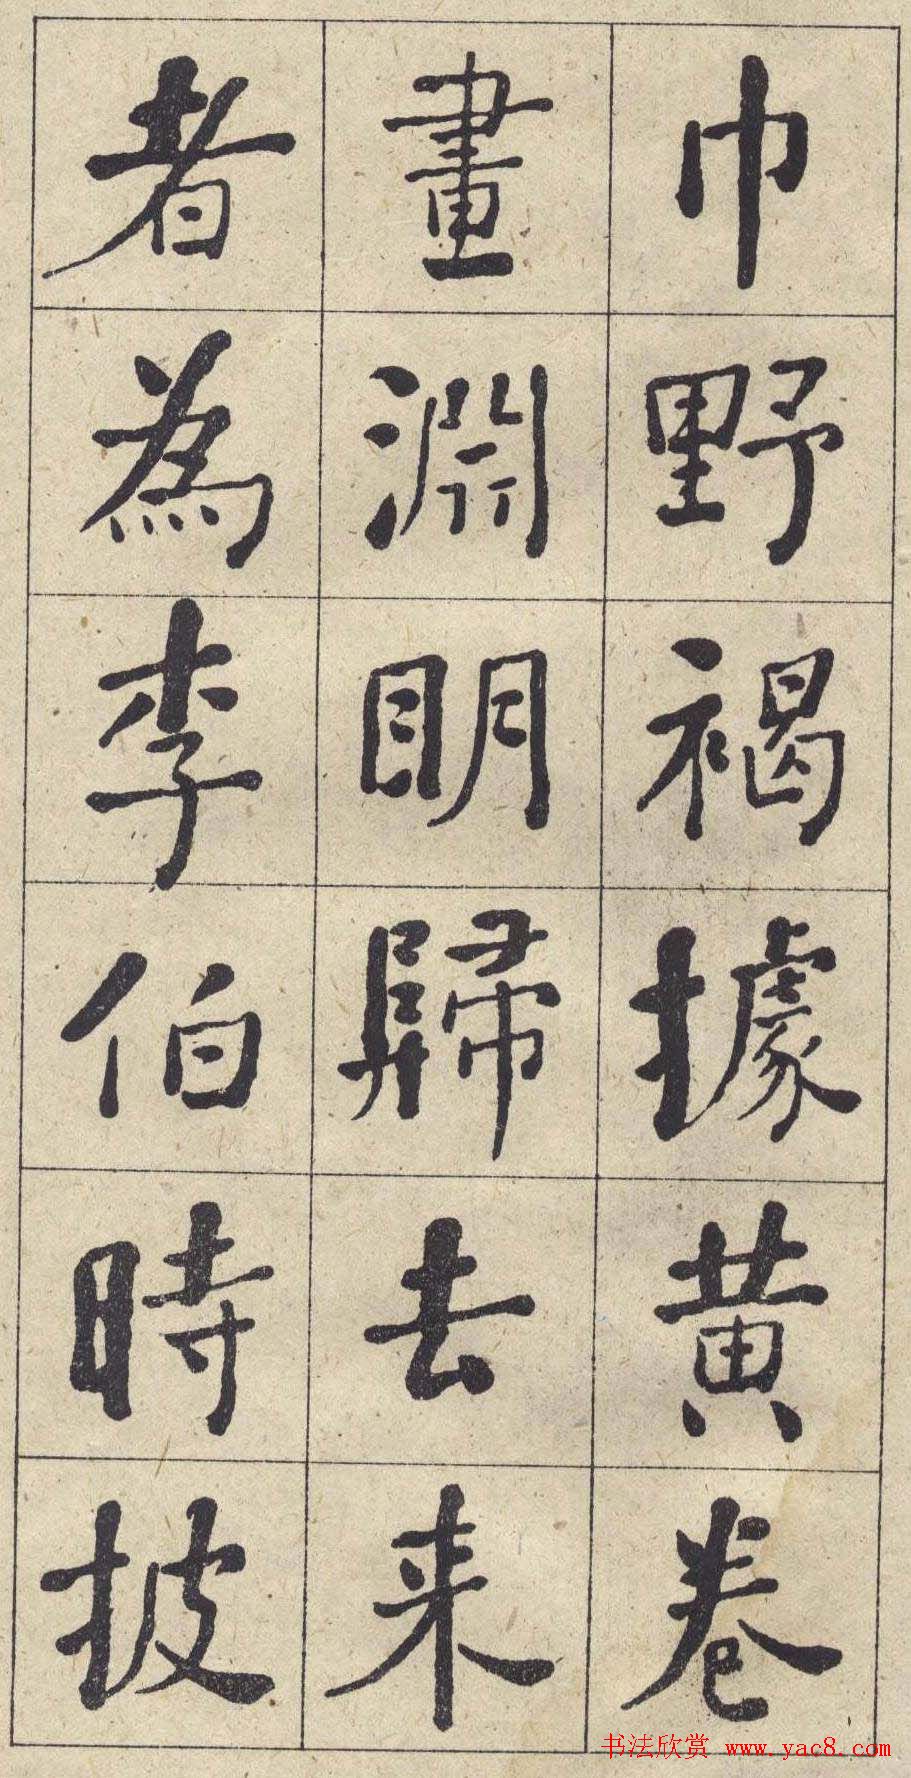 巾野褐據黄卷
畫淵明歸去来
者為李伯時披
书法欣赏 www.yac8.com